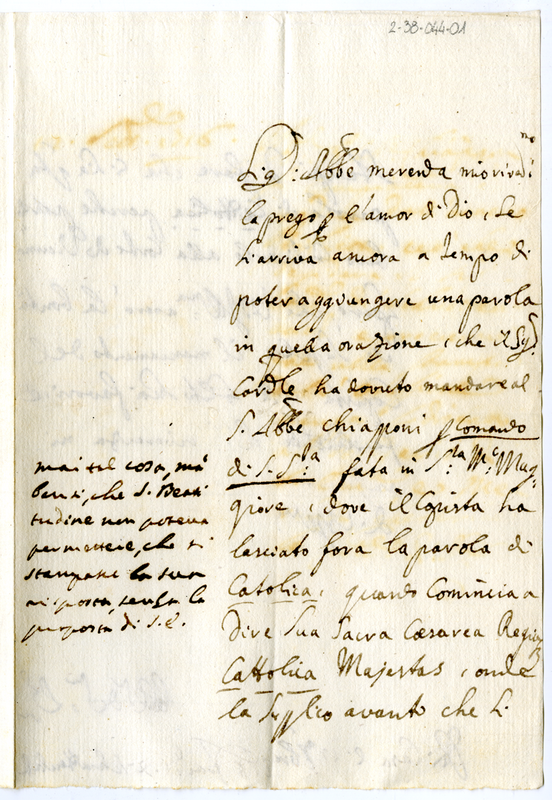 2-38-044-01
Sig: Abbe merenda mio riv
la prego p l'amor di Dio, se
Li arriva ancora a tempo di
poter aggiungere una parola
in quella orazione, che il Sig
Cardle ha dovuto mandare al
S. Abbe chiaponi p Comando
di S. S.ta fata in S.ta M. Mag
giore, dove il ha
lasciato fora la parola di
Catolica, quando Comincia a
Dire Sua Sacra Cæsarea Regia
Cattolica Majestas, onde
la Supplico avanto che L:
mai tal cosa, mà
bensi, che S. Beati
tudine non poteva
permettere, che si
stampasse la sua
risposta, senza la
proposta di S. E.